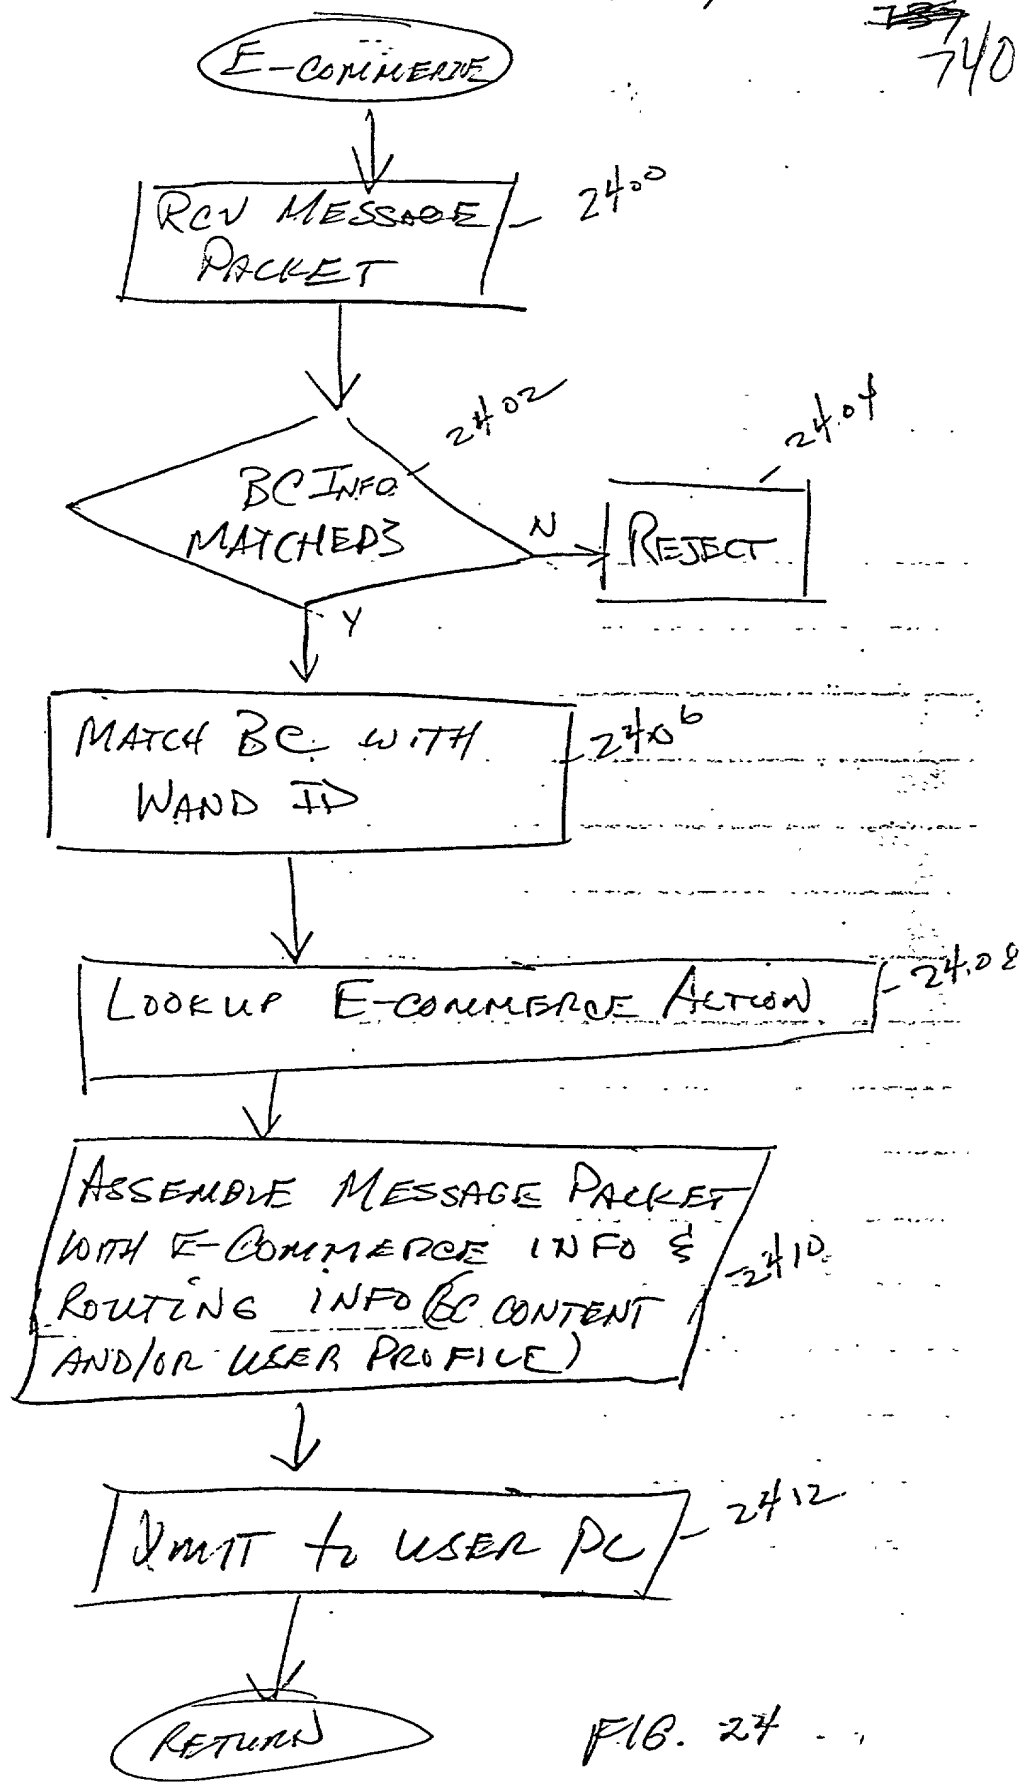 740
E-COMMERCE
RCV MESSAGE
PACKET
2400
2402
BC INFO
MATCHED?
N
2404
REJECT
Y
MATCH BC WITH
WAND ID
2406
LOOKUP E-COMMERCE ACTION
2408
ASSEMBLE MESSAGE PACKET
WITH E-COMMERCE INFO &
ROUTING INFO (BC CONTENT
AND/OR USER PROFILE)
2410
XMIT to USER PC
2412
RETURN
FIG. 24